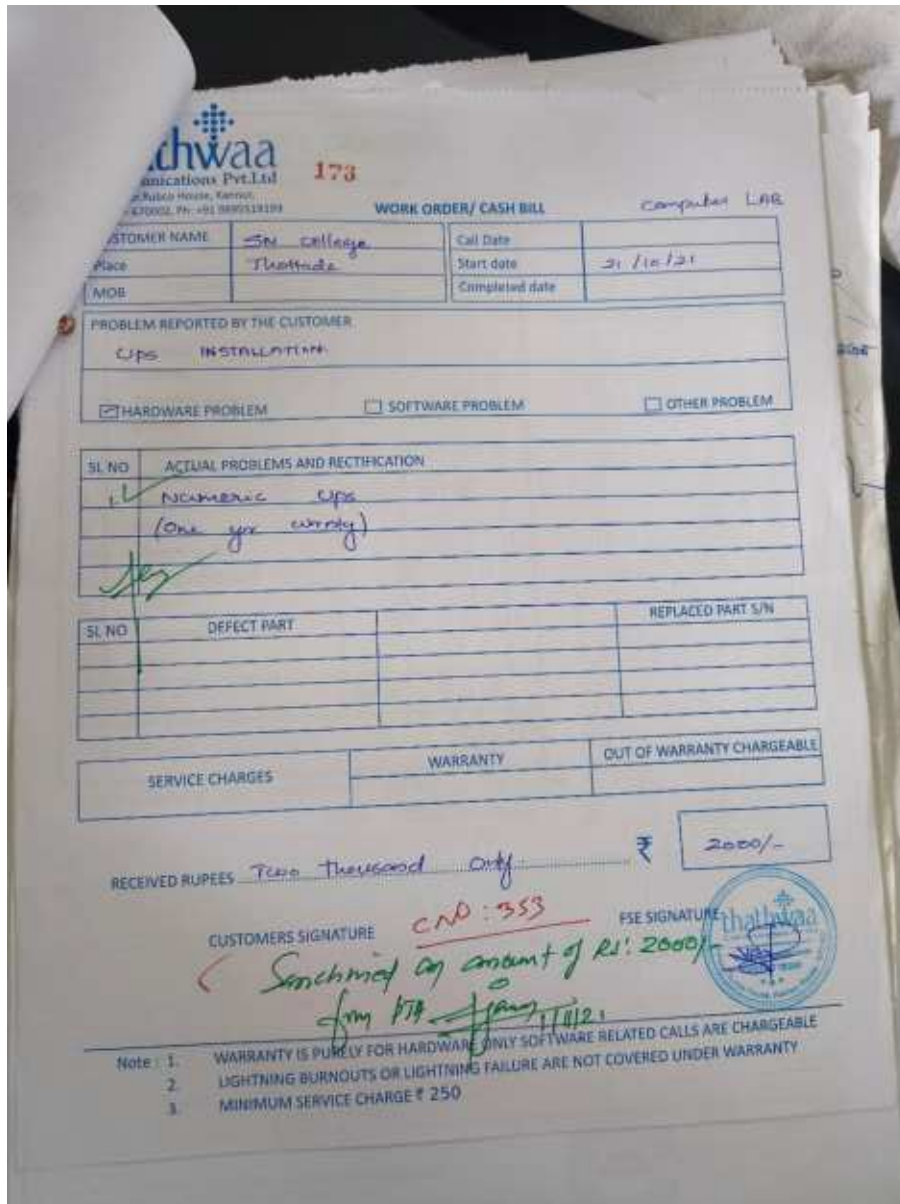 thwaa
unications Pvt.Ltd
173
WORK ORDER/ CASH BILL
Computer LAB
STOMER NAME SN College
Call Date
Place Thottada
Start date 21/10/21
MOB
Completed date
PROBLEM REPORTED BY THE CUSTOMER
UPS INSTALLATION
HARDWARE PROBLEM SOFTWARE PROBLEM OTHER PROBLEM
SL NO ACTUAL PROBLEMS AND RECTIFICATION
1. Numeric Ups
(One yr
SL NO DEFECT PART REPLACED PART S/N
SERVICE CHARGES WARRANTY OUT OF WARRANTY CHARGEABLE
RECEIVED RUPEES Two Thousand Only ₹ 2000/-
CUSTOMERS SIGNATURE CNO : 353 FSE SIGNATURE
thathwaa
an amount of Rs: 2000/-
from PTA 1/11/21
Note : 1. WARRANTY IS PURELY FOR HARDWARE ONLY SOFTWARE RELATED CALLS ARE CHARGEABLE
2. LIGHTNING BURNOUTS OR LIGHTNING FAILURE ARE NOT COVERED UNDER WARRANTY
3. MINIMUM SERVICE CHARGE ₹ 250